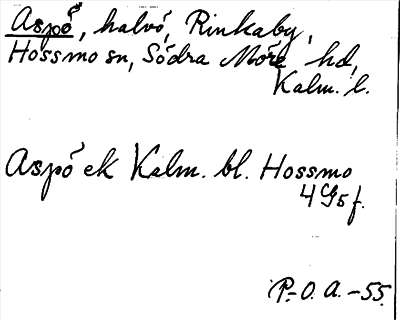 Aspö, halvö, Rinkaby,
Hossmo sn, Södra Möre hd,
Kalm. l.
Aspö ek Kalm. bl. Hossmo
4 G5 f.
P-O. A. -55.